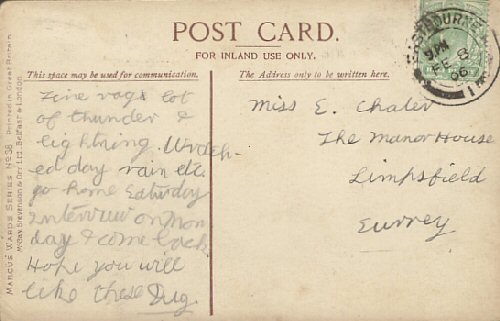 POST CARD.
FOR INLAND USE ONLY.
This space may be used for communication.
The Address only to be written here.
MARCUS WARDS SERIES No 38. Printed in Great Britain.
McCaw, Stevenson & Orr Ltd. Belfast & London.
EASTBOURNE
9 PM
FE 8
06
lot
of thunder &
lightning. Wretch-
ed day rain etc.
go home Saturday
Interview on Mon
day & come back
Hope you will
like these
Miss E. Chater
The Manor House
Limpsfield
Surrey